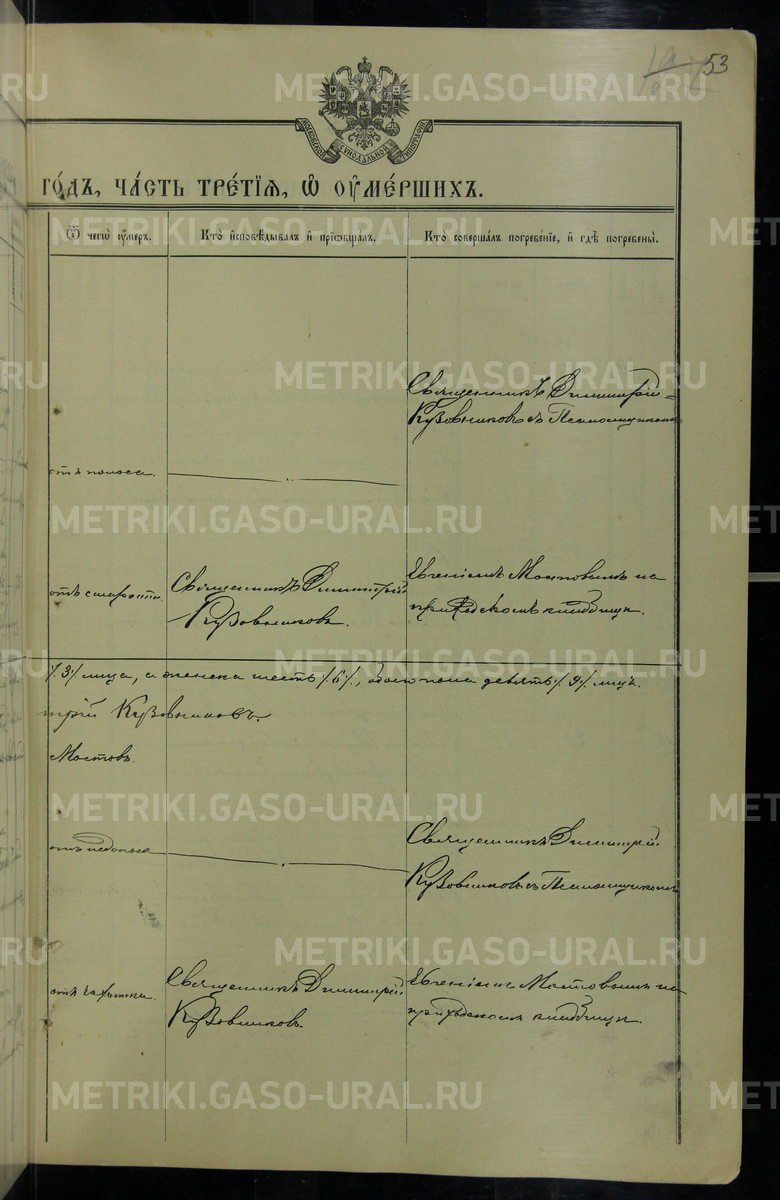 53
МОСКОВСКОЙ СѴНОДАЛЬНОЙ ТИПОГРАФІИ
го́дъ, ча́сть тре́тїѧ, ѡ҆ ᲂу҆ме́ршихъ.
Ѿ чегѡ̀ ᲂу҆́меръ.
Кто̀ и҆сповѣ́дывалъ и҆ прїѡбща́лъ.
Кто̀ соверша́лъ погребе́нїе, и҆ гдѣ̀ погребены̀.
Священникъ Димитрій
Кузовниковъ съ Псаломщикомъ
отъ поноса.
отъ старости.
Священникъ Димитрій
Кузовниковъ.
Евгеніемъ Мостовымъ на
приходскомъ кладбищѣ.
/3/ лица, а женска шесть /6/, обоего пола девять /9/ лицъ.
трій Кузовниковъ.
Мостовъ.
отъ поноса
Священникъ Димитрій
Кузовниковъ съ Псаломщикомъ
отъ чахотки.
Священникъ Димитрій
Кузовниковъ.
Евгеніемъ Мостовымъ на
приходскомъ кладбищѣ.
METRIKI.GASO-URAL.RU